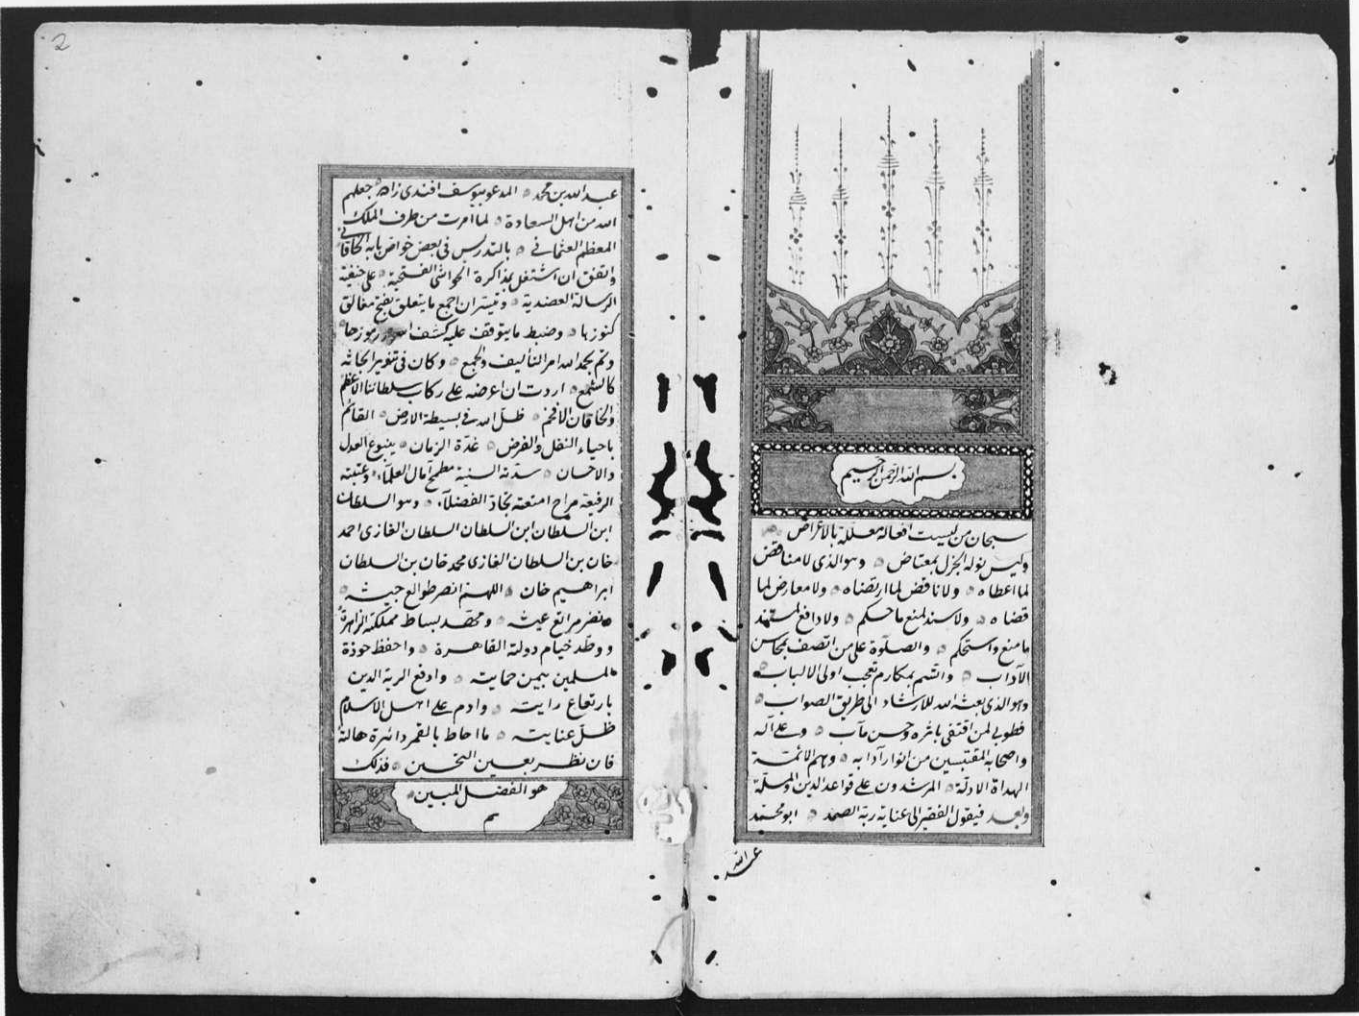 بسم الله الرحمن الرحيم
سبحان من ليست افعاله معللة بالاغراض
وليس نوله الجزل بمعتاض ٥ وهو الذى لا مناقض
لما اعطاه ٥ ولا ناقض لما ارتضاه ٥ ولا معارض لما
قضاه ٥ ولا سند لمنع ما حكم ٥ ولا دافع لمستند
ما منع واستحكم ٥ والصلوة على من اتصف بمحاسن
الآداب ٥ واتسم بمكارم تعجب اولى الالباب
وهو الذى بعثه الله للارشاد الى طريق الصواب ٥
فطوبى لمن اقتفى باثره وحسن مآب ٥ وعلى آله
واصحابه المقتبسين من انوار آدابه ٥ وهم الائمة
الهداة الادلة ٥ المرشدون على قواعد الدين والملة
وبعد فيقول الفقير الى عناية ربه الصمد ٥ ابو محمد
عبد الله
2
عبد الله بن محمد ٥ المدعو بيوسف افندى زاده جعلهم
الله من اهل السعادة ٥ لما امرت من طرف الملك
المعظم العثمانى ٥ بالتدريس فى بعض خواص بابه الخاقانى
واتفق ان اشتغل بمذاكرة الحواشى الفتحية ٥ على حنفية
الرسالة العضدية ٥ وتيسر ان اجمع ما يتعلق بفتح مغالق
كنوزها ٥ وضبط ما يتوقف عليه كشف رموزها
وتم بحمد الله امر التأليف والجمع ٥ وكان فى تنوير
كالشمع ٥ اردت ان اعرضه على ركاب سلطاننا الاعظم
والخاقان الافخم ٥ ظل الله فى بسيطة الارض ٥ القائم
باحياء النفل والفرض ٥ غرة الزمان ٥ ينبوع العدل
والاحسان ٥ سدته السنية مطمح آمال العلماء ٥ وعتبته
الرفيعة امتعة الفضلاء ٥ وهو السلطان
ابن السلطان ابن السلطان السلطان الغازى احمد
خان بن السلطان الغازى محمد خان بن السلطان
ابراهيم خان ٥ اللهم انصر طوالع جيشه ٥
ونضر مراتع عيشه ٥ ومهد بساط مملكته الزاهرة
ووطد خيام دولته القاهرة ٥ واحفظ حوزة
المسلمين بيمن حمايته ٥ وارفع الدين
بارتفاع رايته ٥ وادم على اهل الاسلام
ظل عنايته ٥ ما احاط بالقمر دائرة هالة
فان نظر بعين التحسين ٥ فذلك
هو الفضل المبين ٥
م